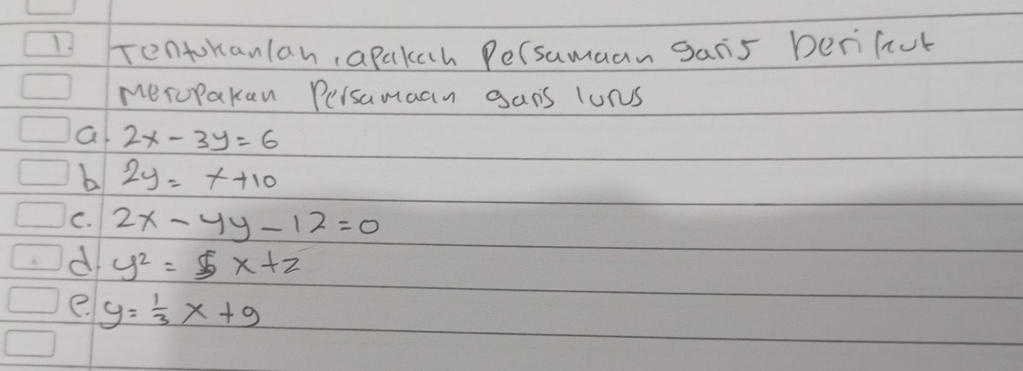 1. Tentukanlah, apakah Persamaan garis berikut
Merupakan Persamaan garis lurus
a. 2x - 3y = 6
b 2y = x+10
c. 2x - 4y - 12 = 0
d. y² = 5 x+2
e. y = 1/3 x + 9